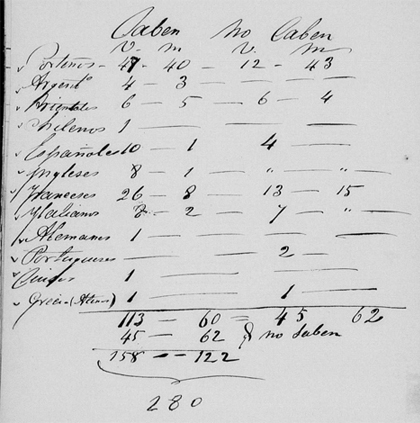 Saben no Saben
v - m v. m
Porteños - 47 - 40 - 12 - 43
Argent.º 4 - 3 — —
Orientales 6 - 5 - 6 - 4
Chilenos 1 — — —
Españoles 10 - 1 4 —
Ingleses 8 - 1 - " - "
Franceses 26 - 8 13 - 15
Italianos 8 - 2 - 7 - " -
Alemanes 1 — — —
Portugueses — — 2 -
1 — — —
Grecia (Atenas) 1 — 1 —
113 - 60 = 45 62
45 - 62 } no saben
158 - - 122
280